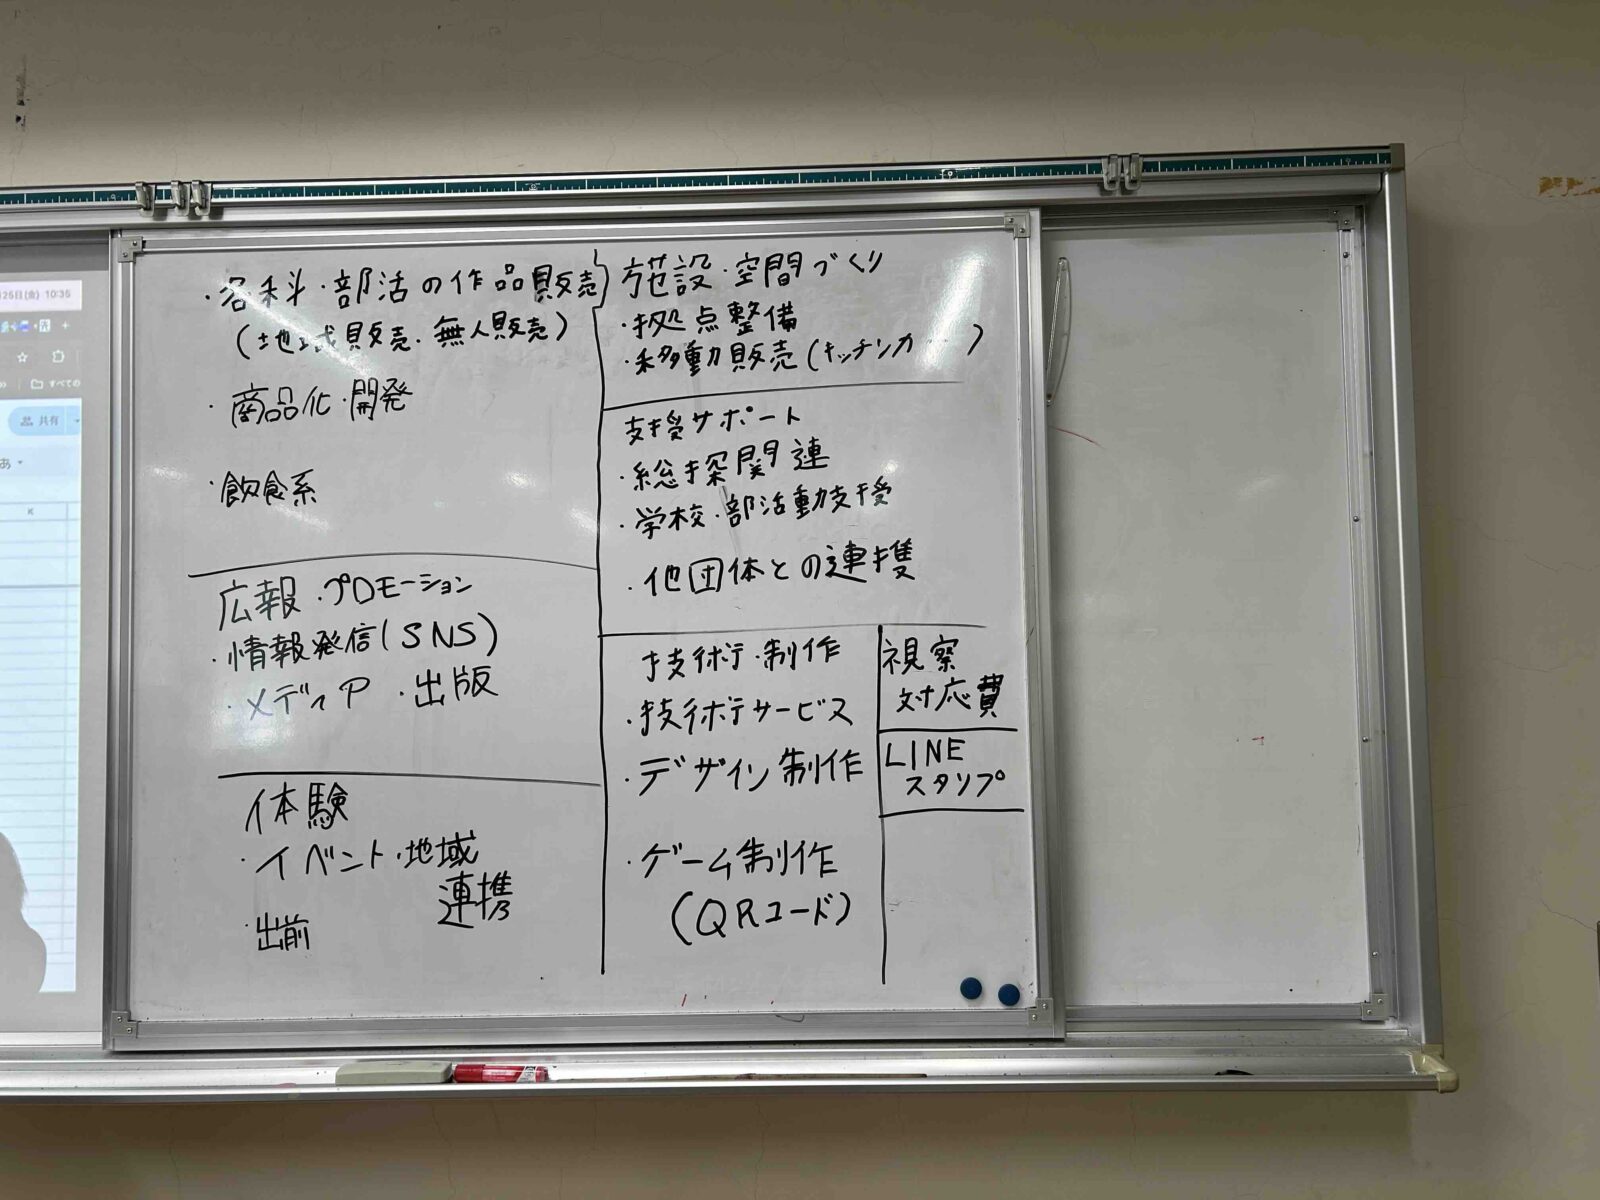 ・各科・部活の作品販売
(地域販売・無人販売)
・商品化・開発
・飲食系
広報・プロモーション
・情報発信(SNS)
・メディア・出版
体験
・イベント・地域
連携
・出前
施設・空間づくり
・拠点整備
・移動販売(キッチンカー)
支援サポート
・総探関連
・学校・部活動支援
・他団体との連携
技術・制作
・技術サービス
・デザイン制作
・ゲーム制作
(QRコード)
視察
対応費
LINE
スタンプ
25日(金) 10:35
すべての
共有
あ
K